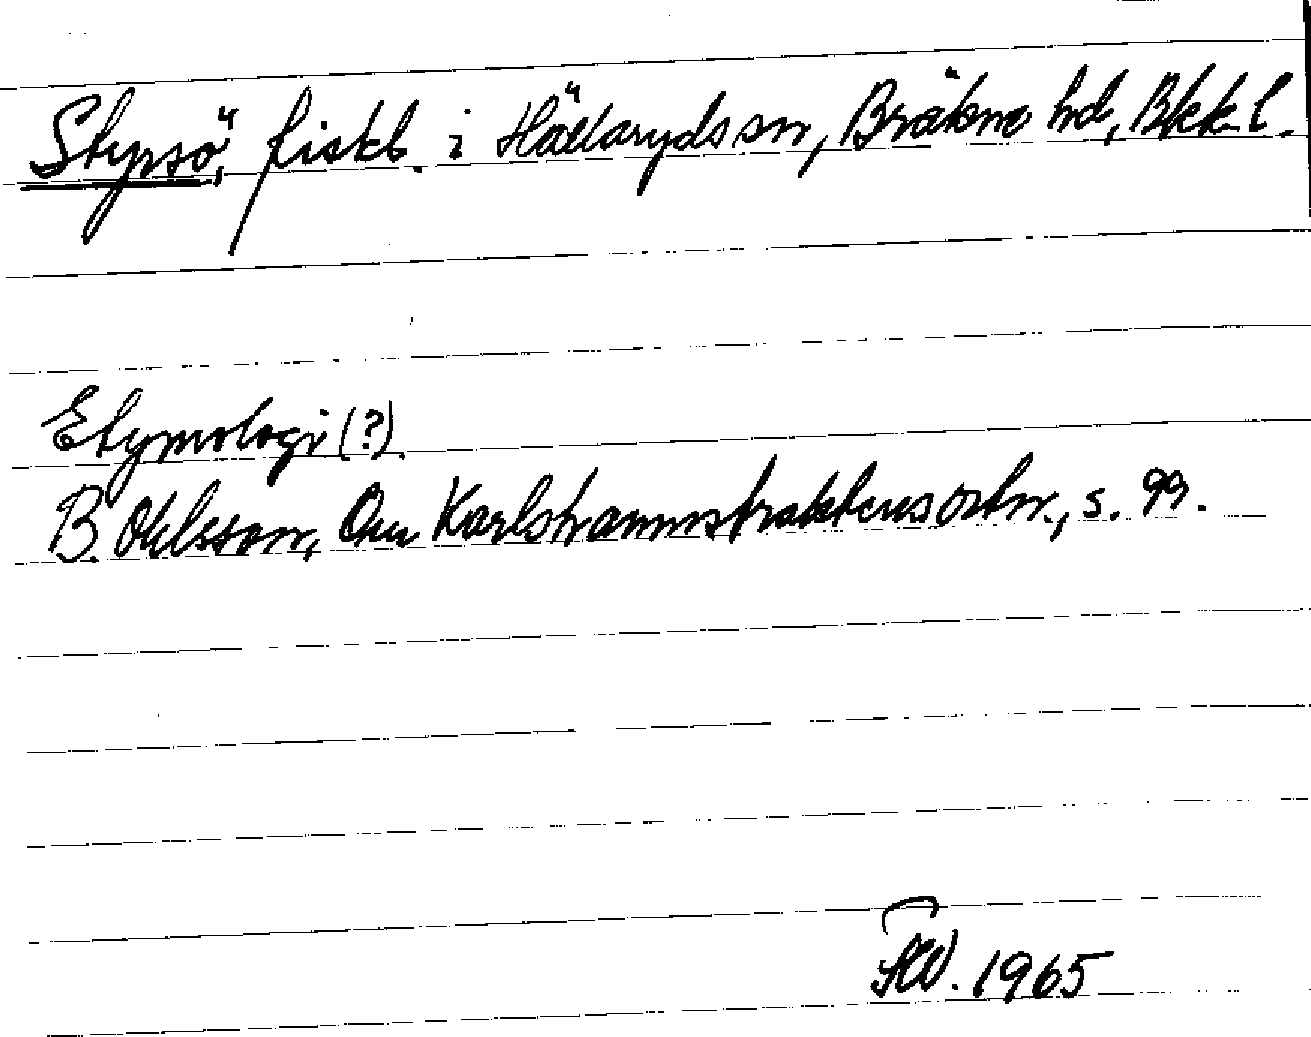 Styrsö, fiskl. i Hällaryds sn, Bräkne hd, Blek. l.
Etymologi (?).
B. Ohlsson, Om Karlshamnstraktens ortn., s. 99.
1965